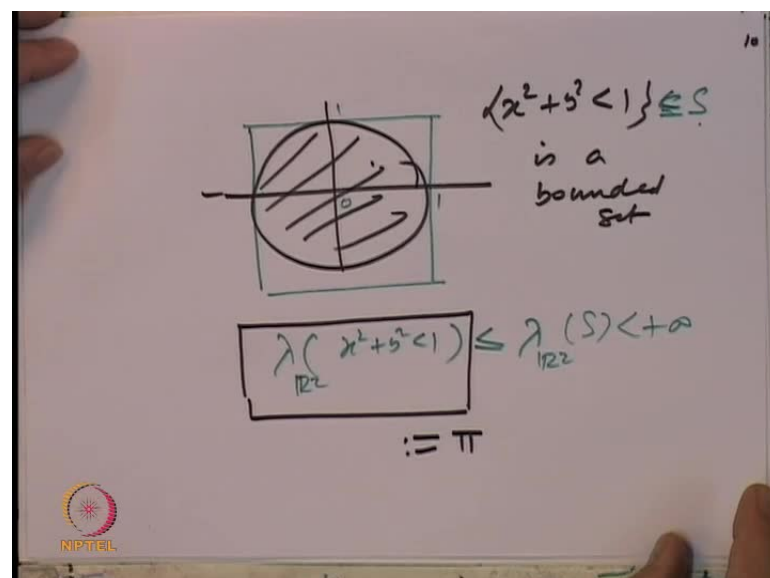 10
{x² + y² < 1} ⊆ S
is a
bounded
set
1
0 1
λ_ℝ² ( x² + y² < 1 ) ≤ λ_ℝ² (S) < +∞
:= π
NPTEL